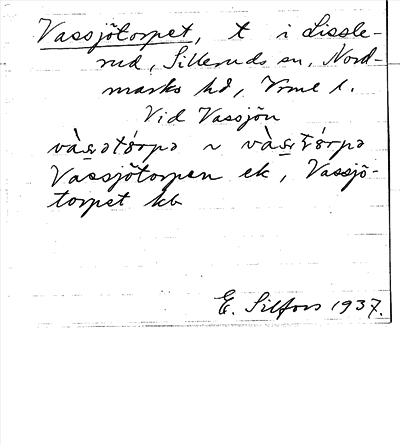 Vassjötorpet, t i Lissle-
rud, Silleruds sn, Nord-
marks hd, Vrml l.
Vid Vassjön
Vassjötorpen ek, Vassjö-
torpet kb
E. Silfors 1937.